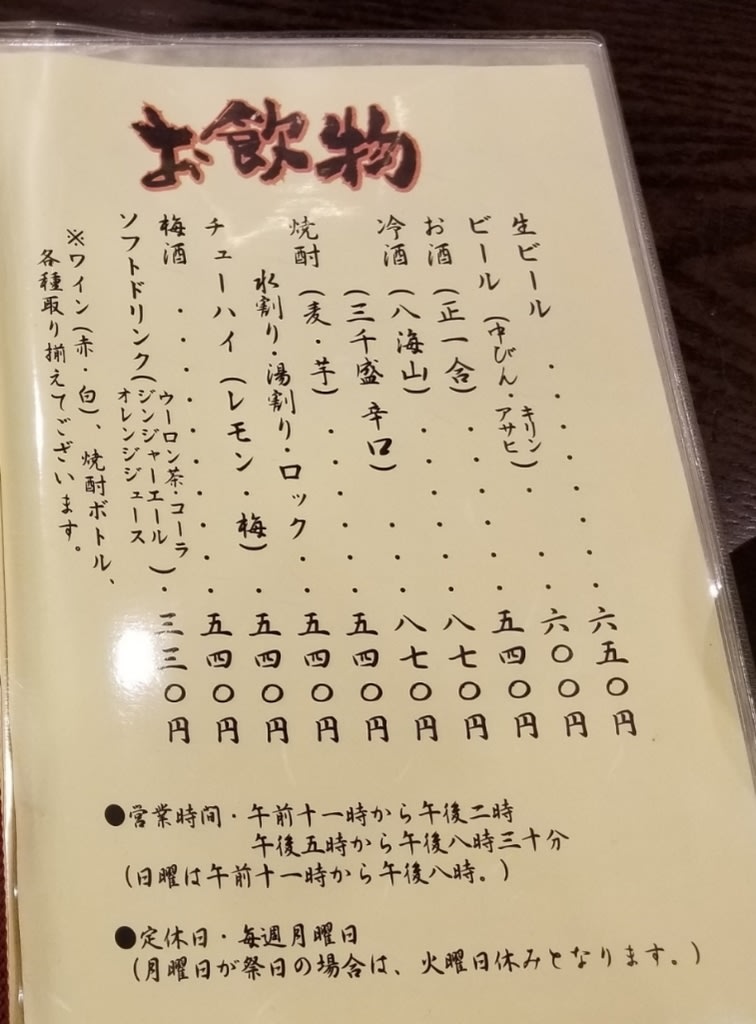 お飲物
生ビール・・・・・・六五〇円
ビール(中びん・キリン
アサヒ)・・・六〇〇円
お酒(正一合)・・・・五四〇円
冷酒(八海山)・・・・・八七〇円
(三千盛 辛口)・・・八七〇円
焼酎(麦・芋)・・・・・五四〇円
水割り・湯割り・ロック・五四〇円
チューハイ(レモン・梅)・五四〇円
梅酒・・・・・・・・・・五四〇円
ソフトドリンク(ウーロン茶・コーラ
ジンジャーエール
オレンジジュース)・三三〇円
※ワイン(赤・白)、焼酎ボトル、
各種取り揃えてございます。
●営業時間・午前十一時から午後二時
午後五時から午後八時三十分
(日曜は午前十一時から午後八時。)
●定休日・毎週月曜日
(月曜日が祭日の場合は、火曜日休みとなります。)